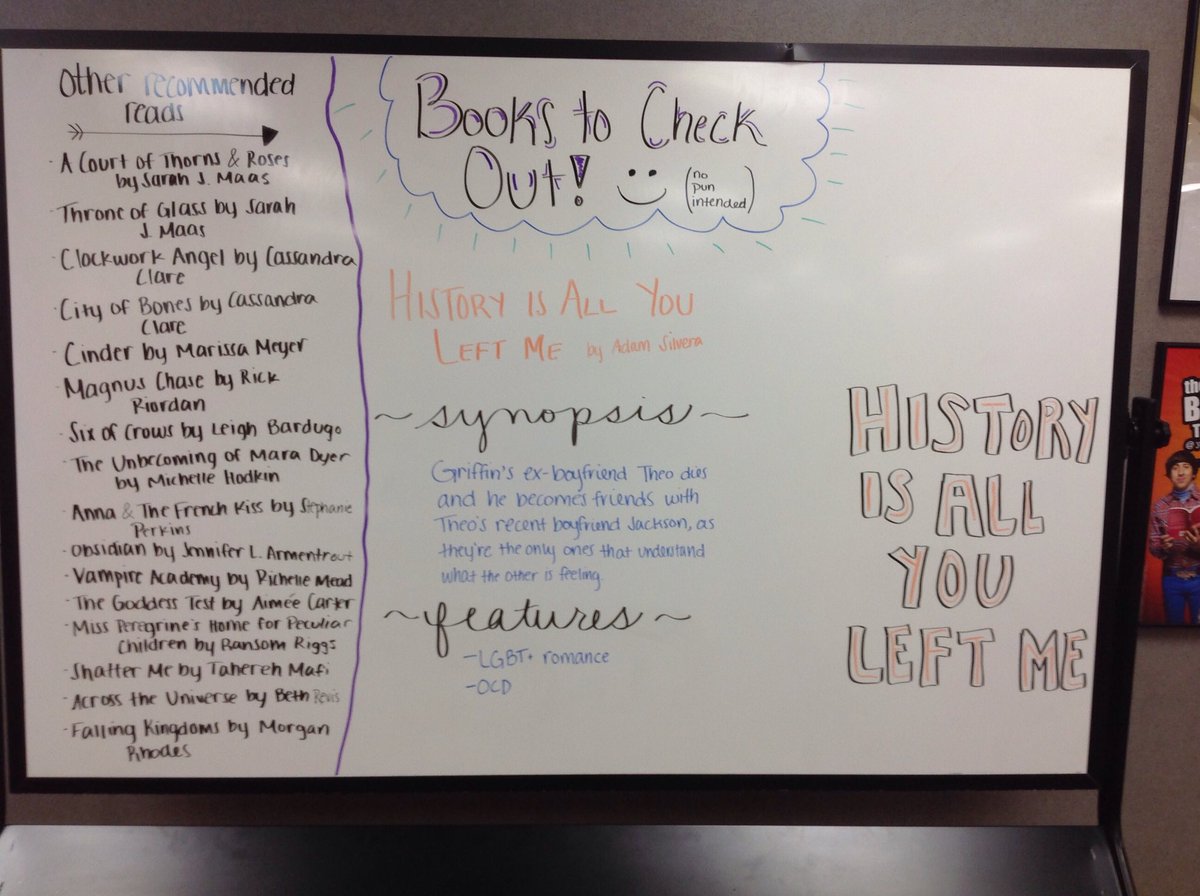 Other recommended
reads
· A Court of Thorns & Roses
by Sarah J. Maas
· Throne of Glass by Sarah
J. Maas
· Clockwork Angel by Cassandra
Clare
· City of Bones by Cassandra
Clare
· Cinder by Marissa Meyer
· Magnus Chase by Rick
Riordan
· Six of Crows by Leigh Bardugo
· The Unbecoming of Mara Dyer
by Michelle Hodkin
· Anna & The French Kiss by Stephanie
Perkins
· Obsidian by Jennifer L. Armentrout
· Vampire Academy by Richelle Mead
· The Goddess Test by Aimée Carter
· Miss Peregrine's Home for Peculiar
Children by Ransom Riggs
· Shatter Me by Tahereh Mafi
· Across the Universe by Beth Revis
· Falling Kingdoms by Morgan
Rhodes
Books to Check
Out! (no
pun
intended)
History is All You
Left Me by Adam Silvera
~synopsis~
Griffin's ex-boyfriend Theo dies
and he becomes friends with
Theo's recent boyfriend Jackson, as
they're the only ones that understand
what the other is feeling.
~features~
-LGBT+ romance
-OCD
HISTORY
IS ALL
YOU
LEFT ME
the
B